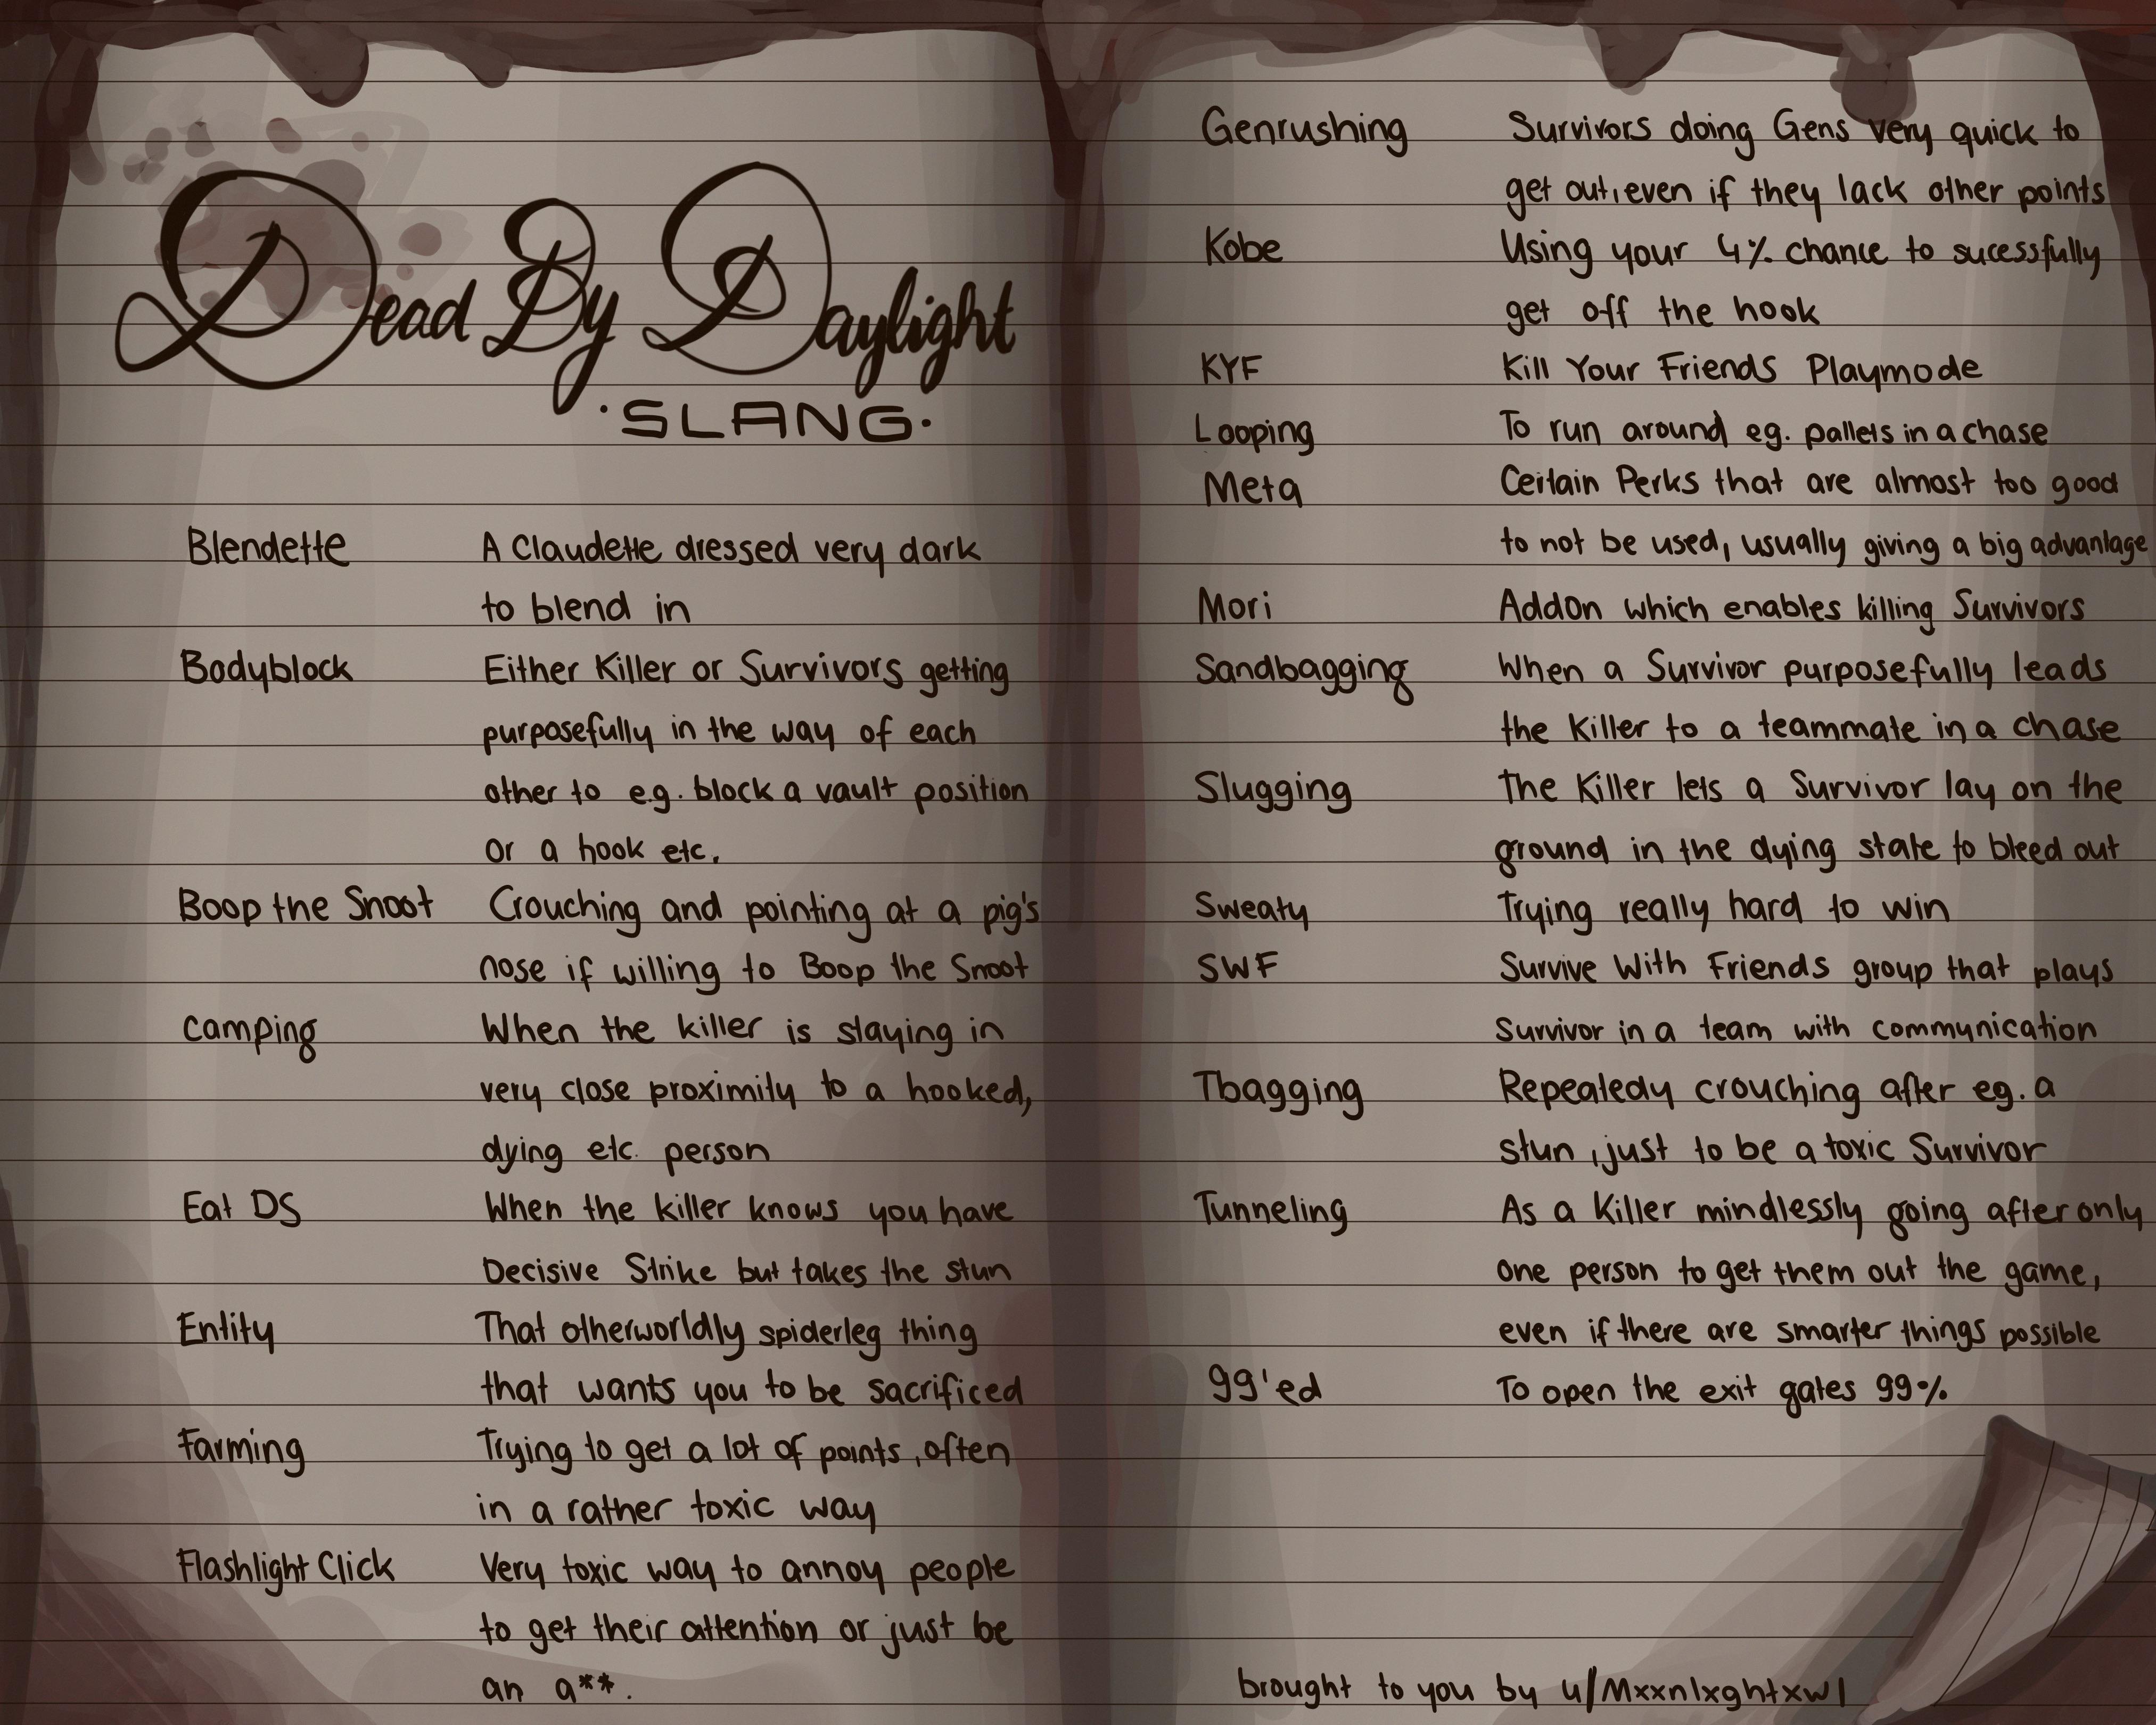 Dead By Daylight
·SLANG·
Blendette A Claudette dressed very dark
to blend in
Bodyblock Either Killer or Survivors getting
purposefully in the way of each
other to e.g. block a vault position
or a hook etc.
Boop the Snoot Crouching and pointing at a pig's
nose if willing to Boop the Snoot
Camping When the killer is staying in
very close proximity to a hooked,
dying etc. person
Eat DS When the killer knows you have
Decisive Strike but takes the stun
Entity That otherworldly spiderleg thing
that wants you to be sacrificed
Farming Trying to get a lot of points, often
in a rather toxic way
Flashlight Click Very toxic way to annoy people
to get their attention or just be
an a**.
Genrushing Survivors doing Gens very quick to
get out, even if they lack other points
Kobe Using your 4% chance to sucessfully
get off the hook
KYF Kill Your Friends Playmode
Looping To run around eg. pallets in a chase
Meta Certain Perks that are almost too good
to not be used, usually giving a big advantage
Mori AddOn which enables killing Survivors
Sandbagging When a Survivor purposefully leads
the Killer to a teammate in a chase
Slugging The Killer lets a Survivor lay on the
ground in the dying state to bleed out
Sweaty Trying really hard to win
SWF Survive With Friends group that plays
Survivor in a team with communication
Tbagging Repeatedy crouching after eg. a
stun, just to be a toxic Survivor
Tunneling As a Killer mindlessly going after only
one person to get them out the game,
even if there are smarter things possible
99'ed To open the exit gates 99%
brought to you by u/Mxxnlxghtxwl